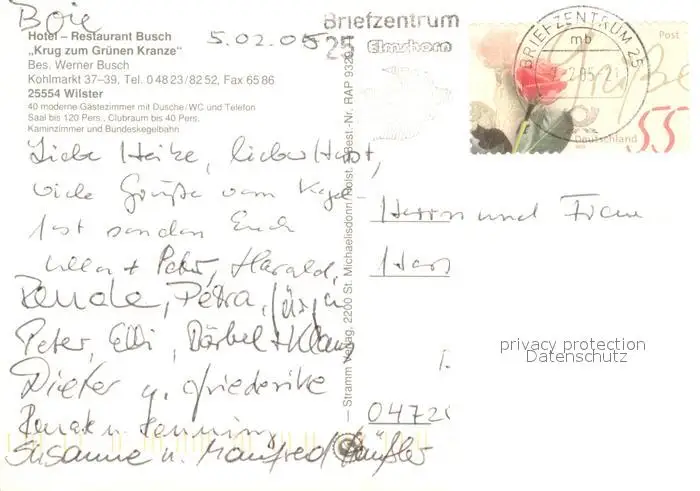 Boie
5.02.05
Hotel – Restaurant Busch
„Krug zum Grünen Kranze"
Bes. Werner Busch
Kohlmarkt 37–39, Tel. 0 48 23/82 52, Fax 65 86
25554 Wilster
40 moderne Gästezimmer mit Dusche/WC und Telefon
Saal bis 120 Pers., Clubraum bis 40 Pers.
Kaminzimmer und Bundeskegelbahn
Liebe Heike, lieber Horst,
viele Grüße vom Kegel-
fest senden Euch
+ Peter, Harald,
Renate, Petra, Jürgen
Peter, Elli, Bärbel + Klaus
Dieter u. Friederike
Renate u. Henning
Susanne u. Manfred
— Stramm Verlag, 2200 St. Michaelisdonn/Holst. Best.-Nr. RAP 9329
Briefzentrum
25 Elmshorn
BRIEFZENTRUM 25
mb
2.05-21
Grüße
Post
Deutschland
55
Herrn und Frau
0472
privacy protection
Datenschutz